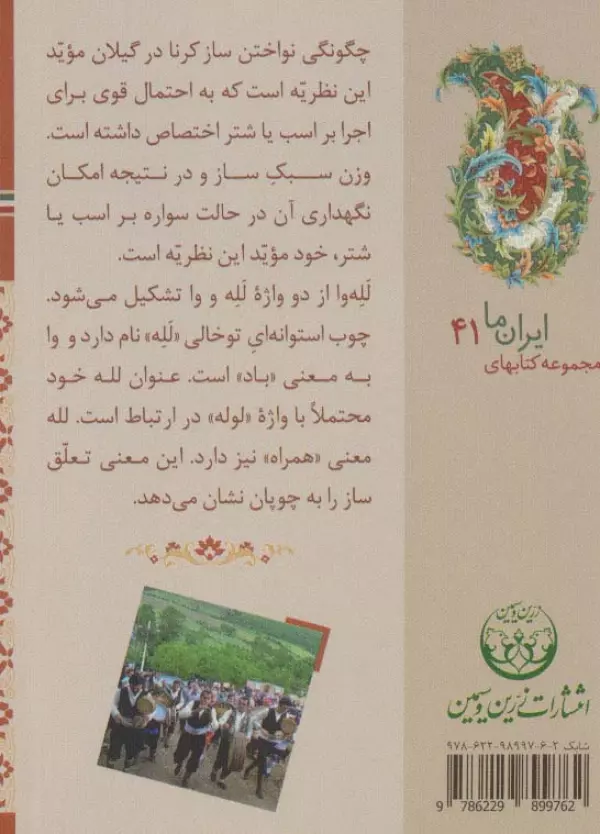 چگونگی نواختن ساز کرنا در گیلان مؤیّد
این نظریّه است که به احتمال قوی برای
اجرا بر اسب یا شتر اختصاص داشته است.
وزن سبکِ ساز و در نتیجه امکان
نگهداری آن در حالت سواره بر اسب یا
شتر، خود مؤیّد این نظریّه است.
لَلِه‌وا از دو واژهٔ لَلِه و وا تشکیل می‌شود.
چوب استوانه‌ایِ توخالی «لَلِه» نام دارد و وا
به معنی «باد» است. عنوان لله خود
محتملاً با واژهٔ «لوله» در ارتباط است. لله
معنی «همراه» نیز دارد. این معنی تعلّق
ساز را به چوپان نشان می‌دهد.
ایران ما ۴۱
مجموعه کتابهای
زرین و سیمین
انتشارات زرّین و سیمین
شابک ۲-۶-۹۸۹۹۷-۶۲۲-۹۷۸
9 786229 899762